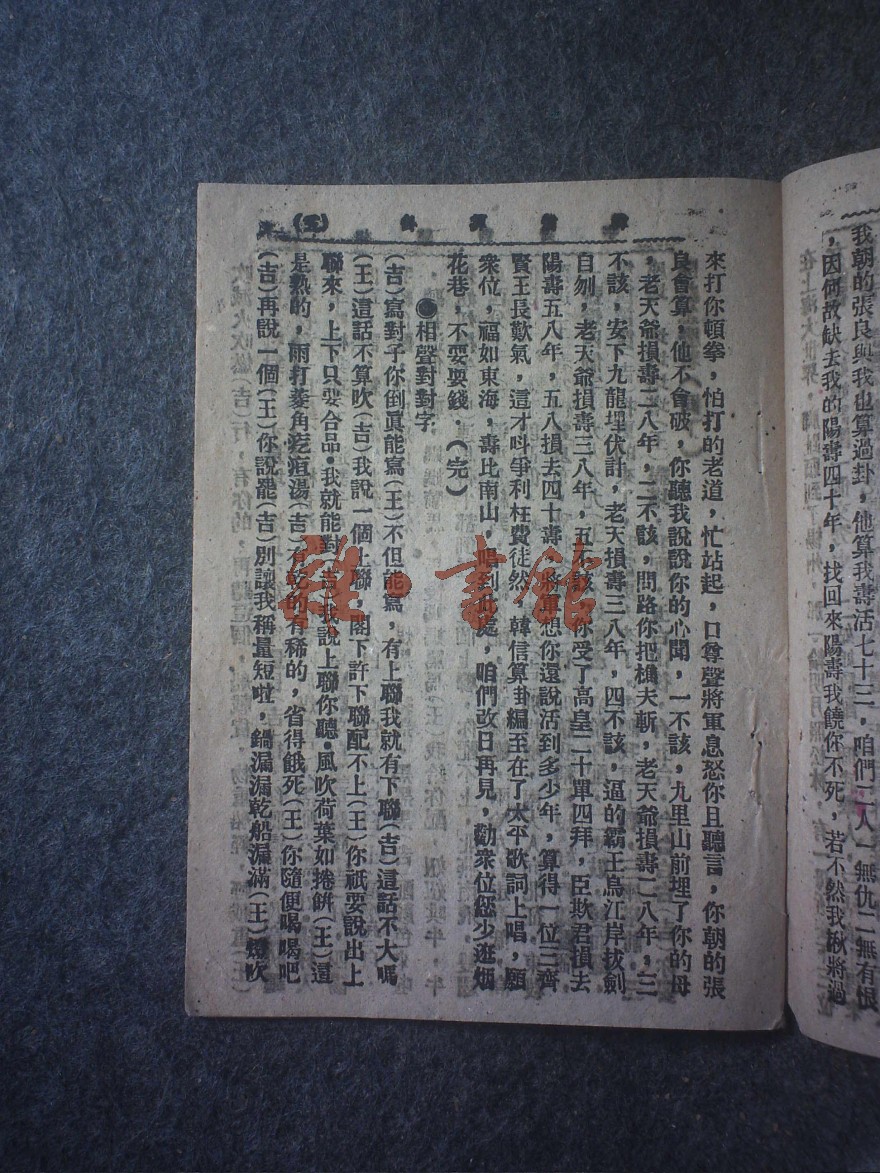 我朝的張良與我也算過卦，他算我壽活七十三，咱們二人一無仇二無有恨
，因何故缺去我的陽壽四十年，找回來陽壽我饒你不死，若不然我楸將過
來打你頓拳，怕打的老道，忙站起，口尊聲將軍息怒你且聽言，你朝的張
良會算，他不會破，你聽我說說你的心聞，一不該，九里山前埋了你的母
，老天爺損壽二八年，二不該，問路你把樵夫斬，老天爺損壽二八年，三
不該，安下九龍埋伏計，老天損壽三八年，四不該，逼的霸王烏江岸拔劍
自刎，老天爺損壽三八年，五不該，你受了高皇二十單四拜，臣欺君損去
陽壽五八年，五八損去四十壽，將軍想你還說活到多少年，算得一位三齊
賢王長歎氣，這才呌爭利枉費徒然，韓信算卦編至在了太平歌詞上唱，願
衆位，福如東海，壽比南山，唱到此處，咱們改日再見，勸衆位您少逛烟
花巷，不耍耍錢。（完）
●相聲對對字
（吉）寫對子你倒眞能寫（王）不但能寫，有上聯我就有下聯（吉）這話不大嗎
（王）這話不算吹（吉）我說一個上聯，閣下許下聯配不上（王）你祇要說出上
聯來，上下只要合品，我就能對（吉）我說上聯你聽，風吹荷葉如捲餅（王）這
是熱的，雨打菱角疙疸湯（吉）有乾的有稀的，省得餓死（王）你隨便喝喝吧
（吉）再說一個（王）你說罷（吉）別讓我稱量短啦，鍋漏漏乾船漏滿（王）燈吹
（五）
雜·書館